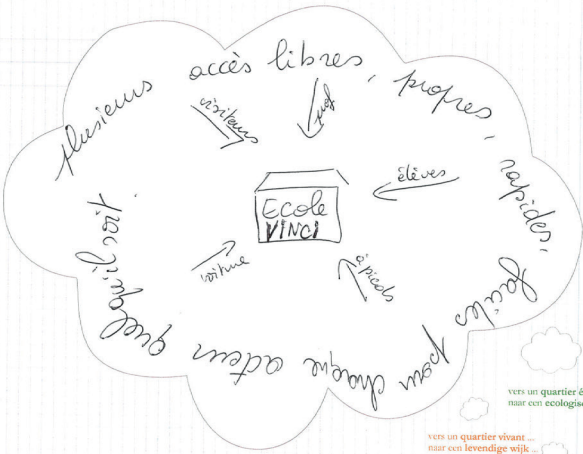 plusieurs accès libres, propres, rapides, faciles pour chaque acteur quel qu'il soit.
visiteurs
prof
élèves
Ecole
VINCI
voiture
à pieds
vers un quartier é
naar een ecologisc
vers un quartier vivant ...
naar een levendige wijk ...